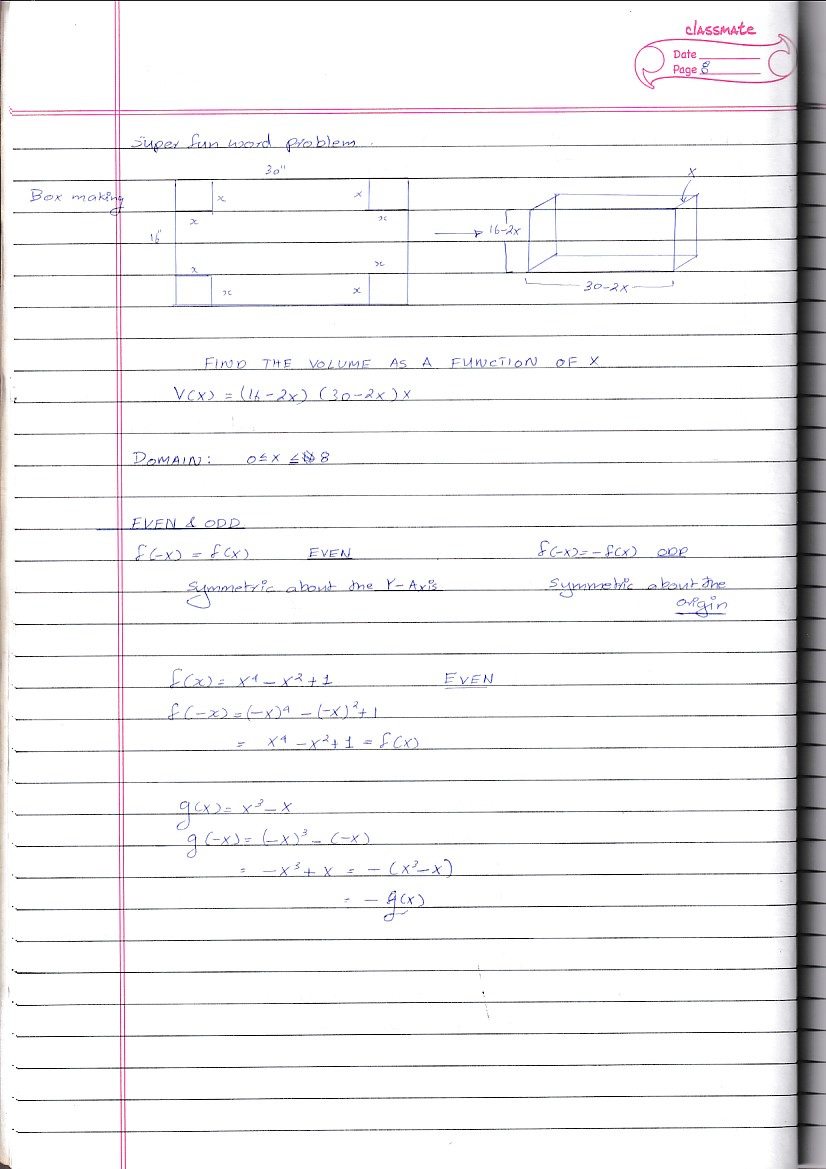 classmate
Date
Page 8
Super fun word problem.
30"
Box making
x
x
x
x
x
16"
x
x
x
x
16-2x
30-2x
FIND THE VOLUME AS A FUNCTION OF X
V(x) = (16-2x) (30-2x)x
DOMAIN: 0≤x ≤ 8
EVEN & ODD
f(-x) = f(x) EVEN
f(-x) = -f(x) ODD
Symmetric about the Y-Axis
Symmetric about the
origin
f(x) = x⁴ - x² + 1 EVEN
f(-x) = (-x)⁴ - (-x)² + 1
= x⁴ - x² + 1 = f(x)
g(x) = x³ - x
g(-x) = (-x)³ - (-x)
= -x³ + x = - (x³ - x)
= - g(x)